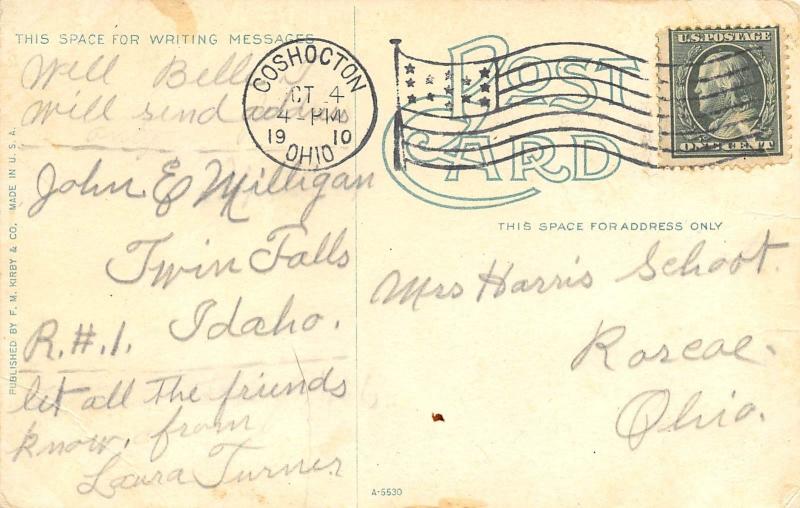 THIS SPACE FOR WRITING MESSAGES
Well Belle I
will send address
John E Milligan
Twin Falls
Idaho.
R.#.1.
let all the friends
know, from
Laura Turner
PUBLISHED BY F. M. KIRBY & CO. MADE IN U. S. A.
COSHOCTON
OCT 4
4-PM
19 10
OHIO
POST
CARD
U.S. POSTAGE
ONE CENT
THIS SPACE FOR ADDRESS ONLY
Mrs Harris Schoot.
Roscoe.
Ohio.
A-5530